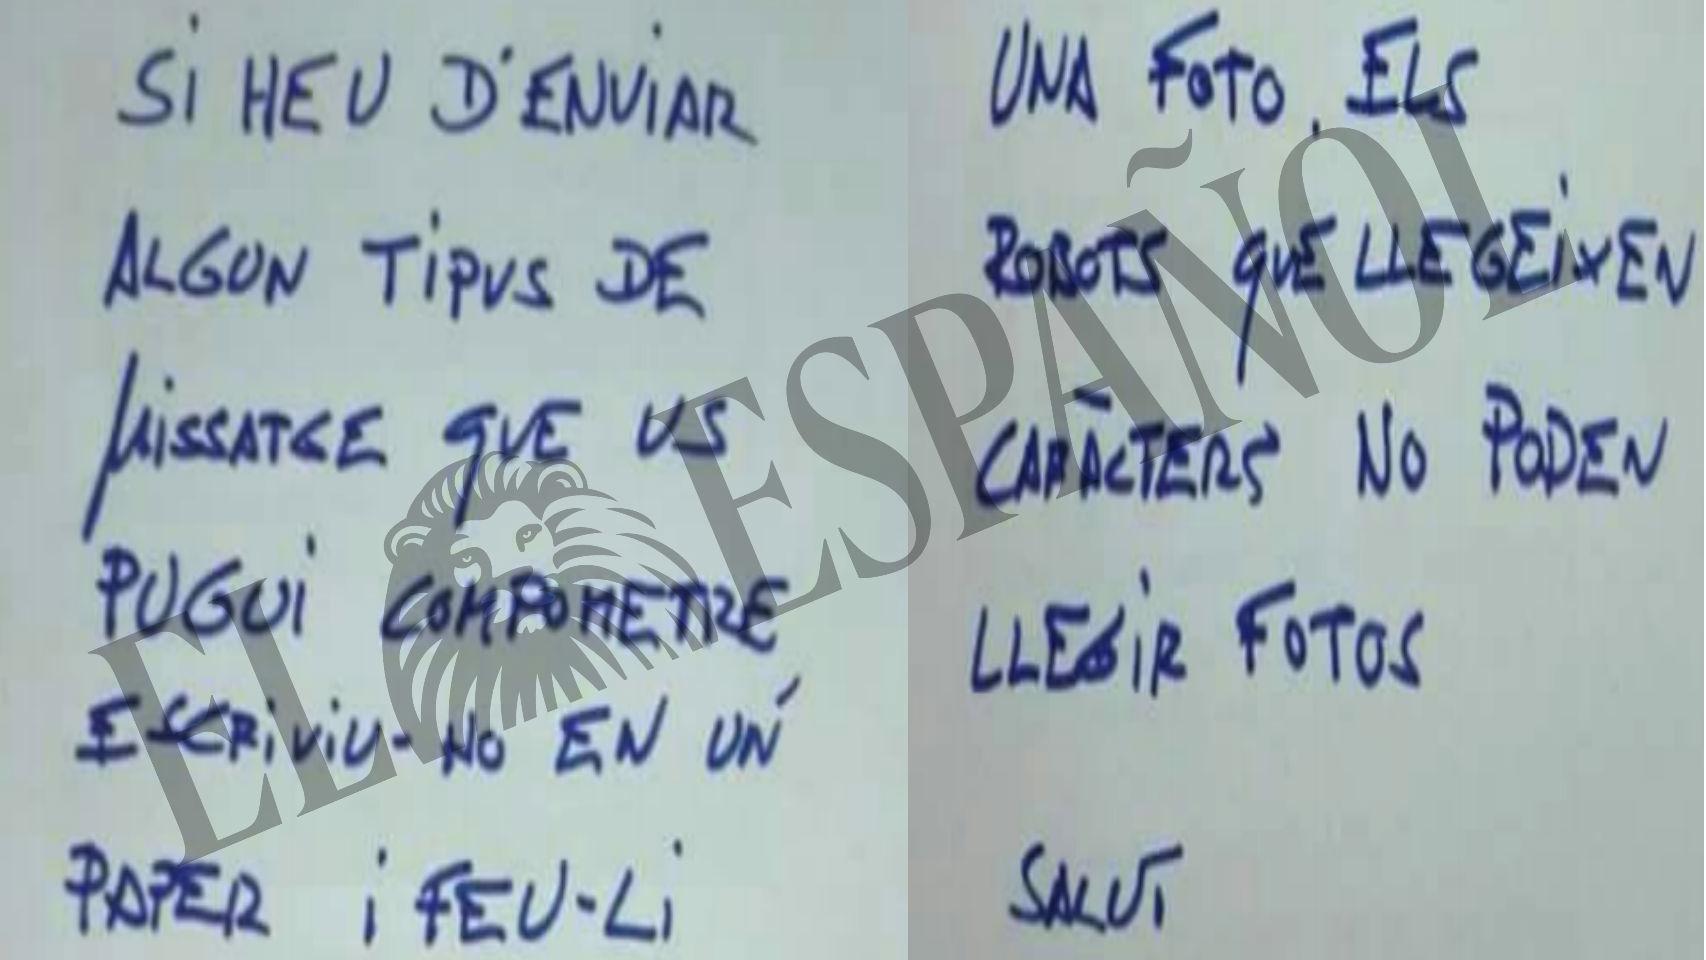 SI HEU D'ENVIAR
ALGUN TIPUS DE
MISSATGE QUE US
PUGUI COMPOMETRE
ESCRIVIU-HO EN UN
PAPER I FEU-LI
UNA FOTO. ELS
ROBOTS QUE LLEGEIXEN
CARÀCTERS NO PODEN
LLEGIR FOTOS
SALUT
EL ESPAÑOL